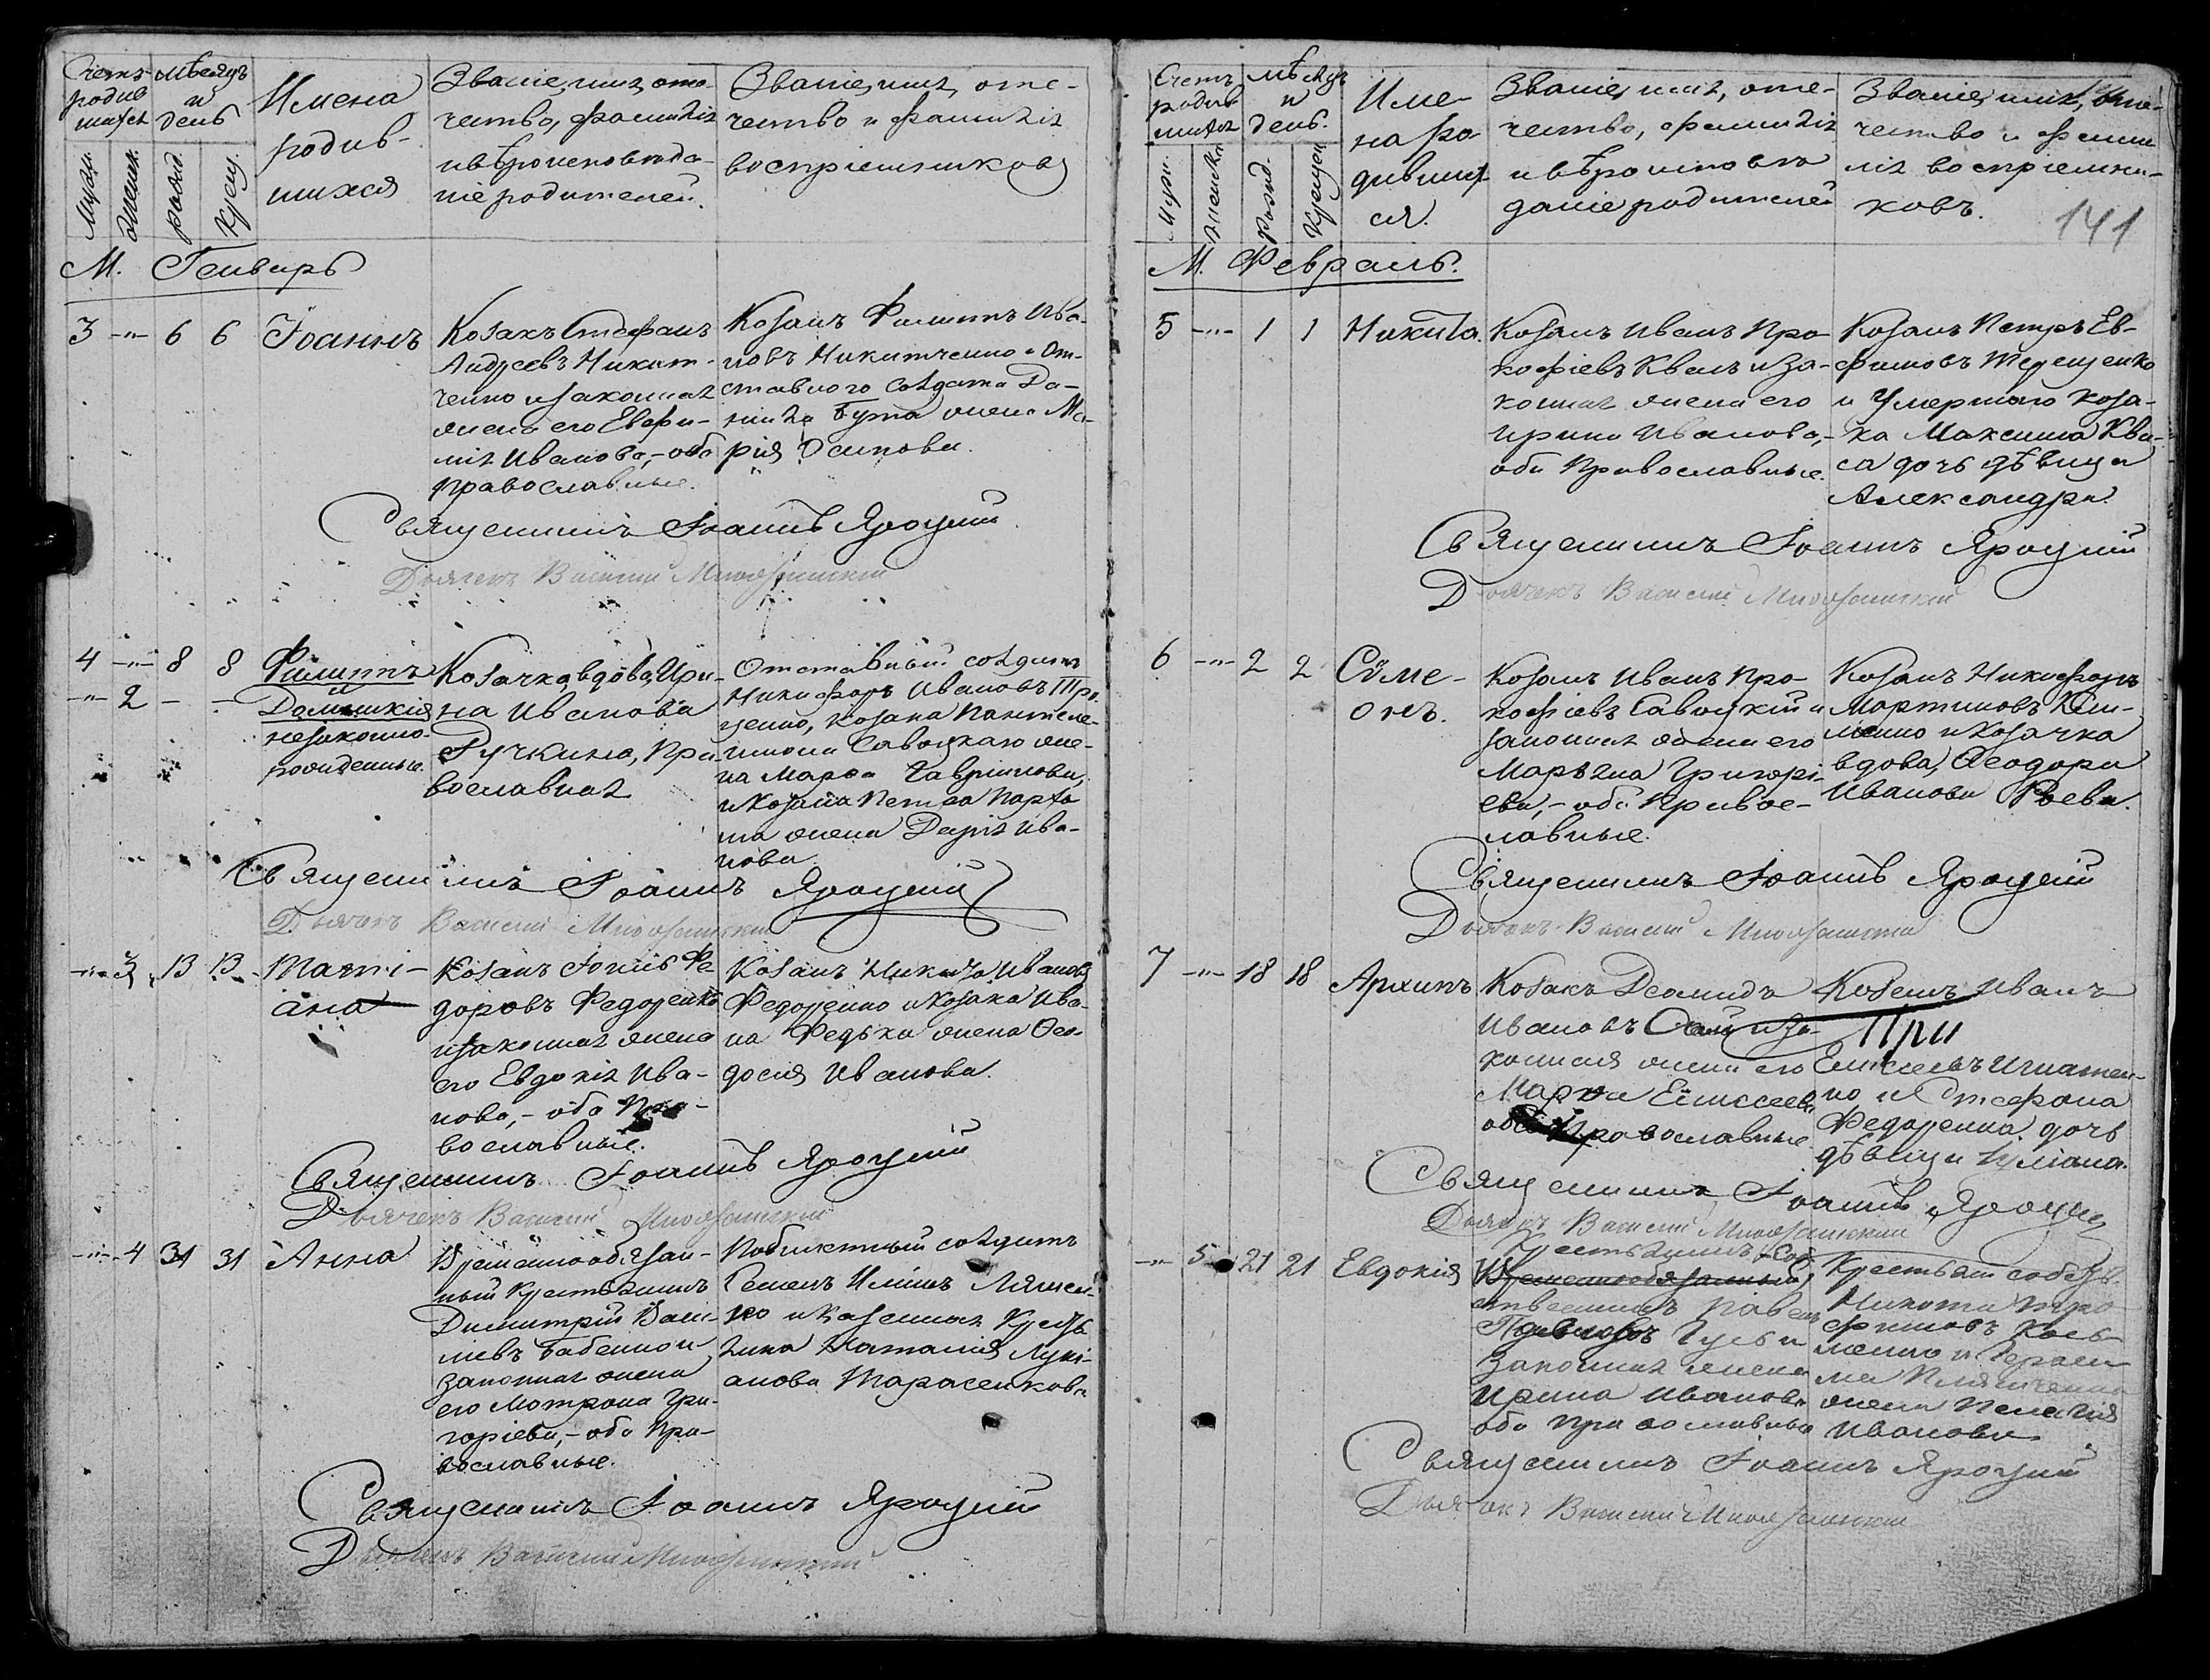 Счетъ родив шихся
Мѣсяцъ и день
Имена родив- шихся
Званіе, имя, оте-
чество, фамилія
и вѣроисповѣда-
ніе родителей.
Званіе, имя, оте-
чество и фамилія
воспріемниковъ
Мужеск.
Женск.
Рожд.
Крещ.
М. Генварь
3 -"- 6 6 Іоаннъ
Козакъ Стефанъ
Андреевъ Никит-
ченко и законная
жена его Евфи-
мія Иванова, - оба
православные.
Козакъ Филиппъ Ива-
новъ Никитченко и От-
ставного солдата Да-
нила Бута жена Ма-
рія Осипова.
Священникъ Іоаннъ Яроцкій
Дьячекъ Василій
4 -"- 8 8 Филиппъ
-"- 2 - - Домникія
незаконно-
рожденные.
Козачка, вдова, Ири-
на Иванова
Гучкина, Пра-
вославная
Отставный солдатъ
Никифоръ Ивановъ Тро-
ценко, козака Пантеле-
имона Савоцкаго же-
на Марѳа Гаврилова,
и козака Петра
жена Дарія Ива-
нова.
Священникъ Іоаннъ Яроцкій
Дьячекъ Василій
-"- 3 13 13 Таті-
ана
Козакъ Іоаннъ Ѳе
доровъ Федоренко
и законная жена
его Евдокія Ива-
нова, - оба Пра-
вославные.
Козакъ Никита Ивановъ
Федоренко и козака Ива-
на Федька жена Ѳео-
досія Иванова.
Священникъ Іоаннъ Яроцкій
Дьячекъ Василій
-"- 4 31 31 Анна
Временнообязан-
ный крестьянинъ
Димитрій Васи-
ліевъ Бабенко и
законная жена
его Мотрона Гри-
горіева, - оба Пра-
вославные.
Побилетный солдатъ
Семенъ Ляшен-
ко и казенная кресть
янка Наталія Лукі-
анова Тарасенкова
Священникъ Іоаннъ Яроцкій
Дьячекъ Василій
Счетъ родив шихся
Мѣсяцъ и день.
Име- на ро дивших ся.
Званіе, имя, оте-
чество, фамилія
и вѣроисповѣ
даніе родителей
Званіе, имя, оте-
чество и фами
лія воспріемни-
ковъ.
141
Мужс.
Женск.
Рожд.
Крещен
М. Февраль.
5 -"- 1 1 Никита.
Козакъ Иванъ Про
кофіевъ Квасъ и за-
конная жена его
Ирина Иванова, -
оба Православные.
Козакъ Петръ Ев-
фимовъ Терещенко
и умершаго коза-
ка Максима Ква-
са дочь дѣвица
Александра.
Священникъ Іоаннъ Яроцкій
Дьячекъ Василій
6 -"- 2 2 Сѵме-
онъ.
Козакъ Иванъ Про
кофіевъ Савоцкій и
законная жена его
Маръяна Григорі-
ева, - оба Правос-
лавные.
Козакъ Никифоръ
Мартиновъ
и козачка
вдова, Ѳеодора
Иванова
Священникъ Іоаннъ Яроцкій
Дьячекъ Василій
7 -"- 18 18 Архипъ
Козакъ Деомидъ
Ивановъ и за-
конная жена его
Марѳа Елисеева
оба Православные
Козакъ Иванъ
При
Елисеевъ Игнатен-
ко и Стефана
Федоренка дочь
дѣвица Іуліана.
Священникъ Іоаннъ Яроцкій
Дьячекъ Василій
-"- 5 21 21 Евдокія
Крестьянинъ соб
Временнообязанный,
ственникъ
Гусь и
законная жена
Ирина Иванова
оба православные
Крестьян. собств.
Никита Тро
фимовъ Кось
менко и Гераси
ма
жена Пелагія
Иванова
Священникъ Іоаннъ Яроцкій
Дьячекъ Василій